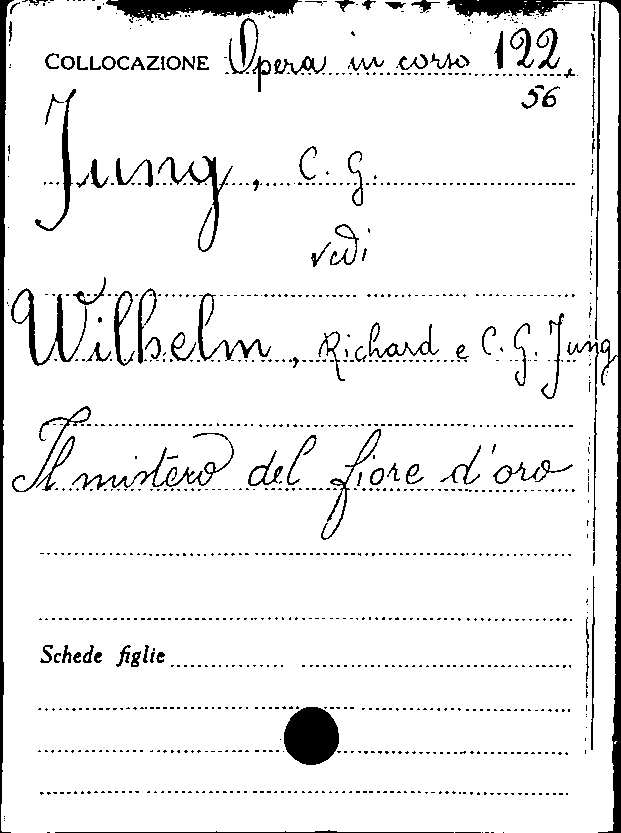 COLLOCAZIONE Opera in corso 122.
56
Jung, C. G.
vedi
Wilhelm, Richard e C. G. Jung
Il mistero del fiore d'oro
Schede figlie